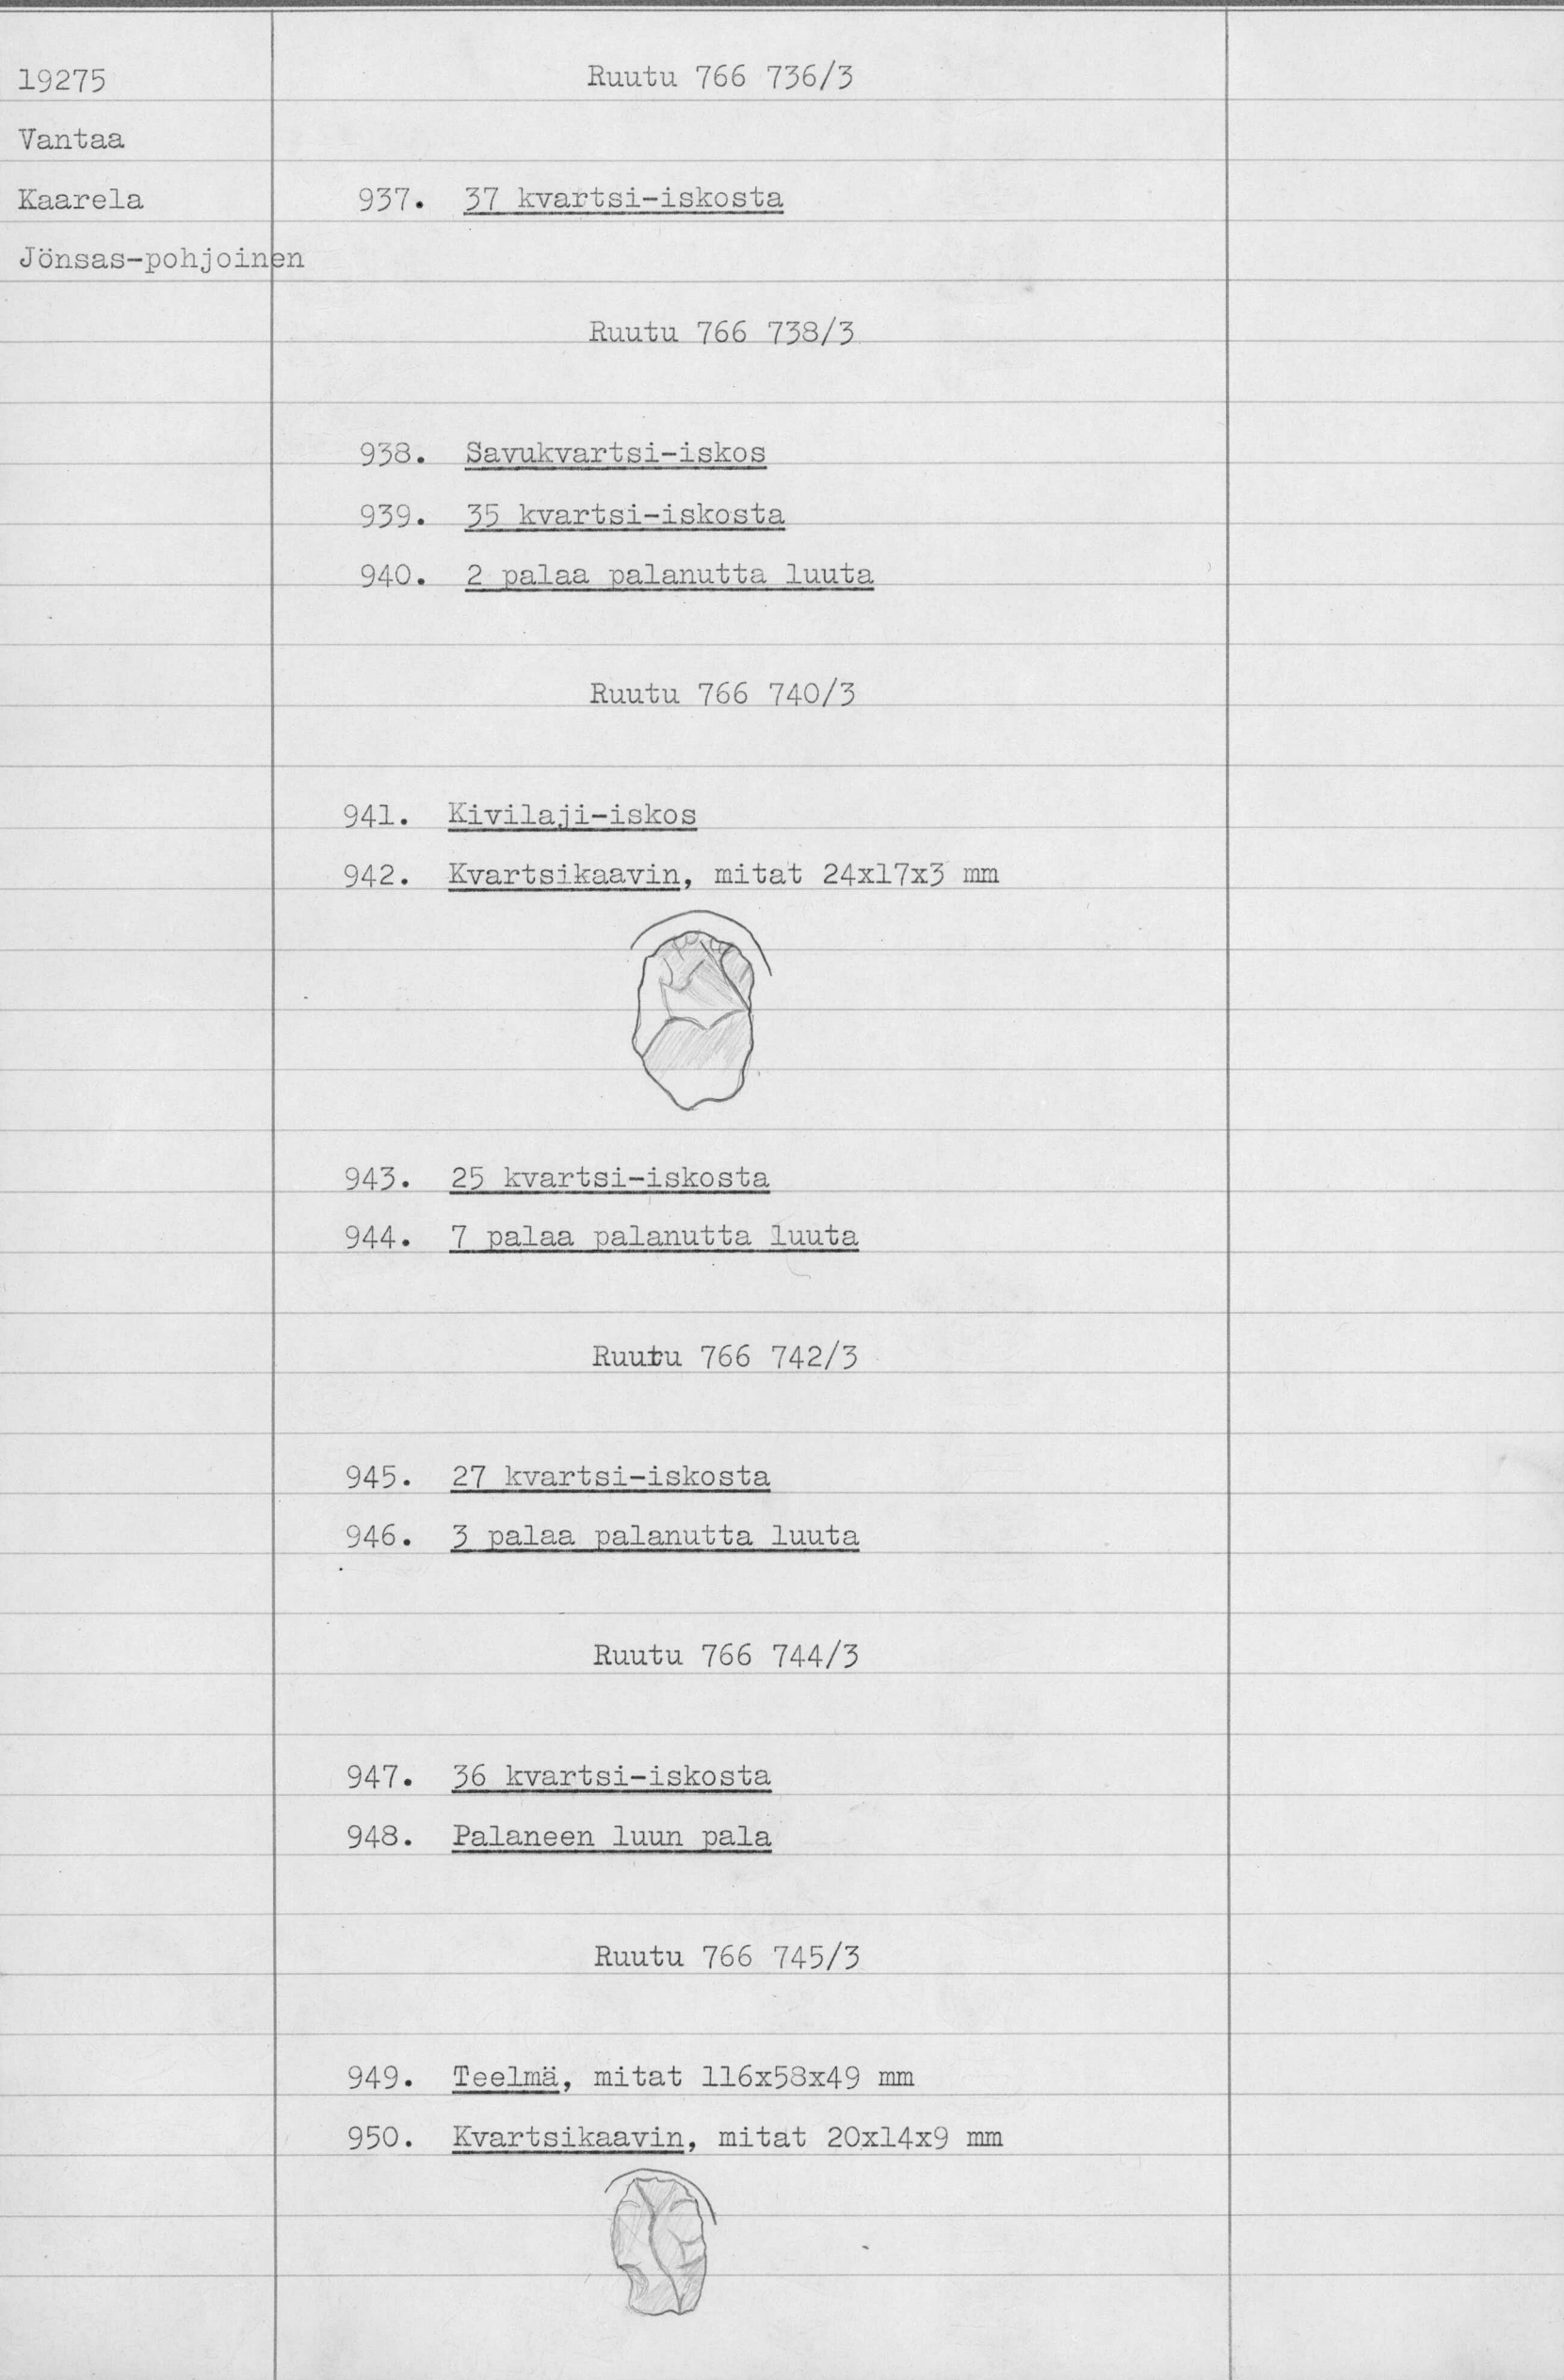 19275
Vantaa
Kaarela
Jönsas-pohjoinen
Ruutu 766 736/3
937. 37 kvartsi-iskosta
Ruutu 766 738/3
938. Savukvartsi-iskos
939. 35 kvartsi-iskosta
940. 2 palaa palanutta luuta
Ruutu 766 740/3
941. Kivilaji-iskos
942. Kvartsikaavin, mitat 24x17x3 mm
943. 25 kvartsi-iskosta
944. 7 palaa palanutta luuta
Ruutu 766 742/3
945. 27 kvartsi-iskosta
946. 3 palaa palanutta luuta
Ruutu 766 744/3
947. 36 kvartsi-iskosta
948. Palaneen luun pala
Ruutu 766 745/3
949. Teelmä, mitat 116x58x49 mm
950. Kvartsikaavin, mitat 20x14x9 mm